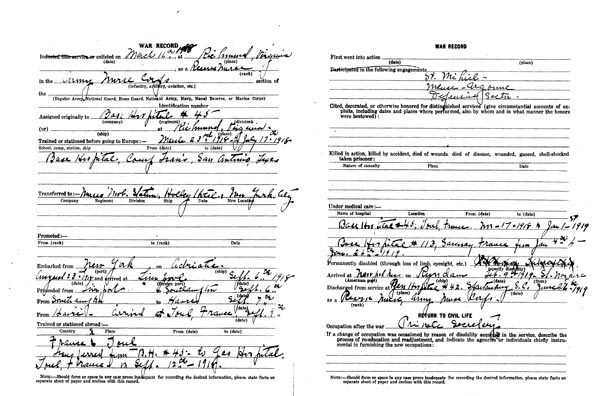 WAR RECORD
Inducted into service or enlisted on March 16th 1918 at Richmond, Virginia
(date) (place)
as a Reserve Nurse
(rank)
in the Army Nurse Corps section of
(infantry, artillery, aviation, etc.)
the
(Regular Army, National Guard, Home Guard, National Army, Navy, Naval Reserve, or Marine Corps)
Identification number
Assigned originally to Base Hospital # 45
(company) (regiment) (division)
(or) at Richmond, Virginia
(ship) (place)
Trained or stationed before going to Europe:— March 23rd 1918 to July 17th 1918
School, camp, station, ship From (date) to (date)
Base Hospital, Camp Travis, San Antonio, Texas
Transferred to:— Nurses' Mob. Station, Holley Hotel, New York City
Company Regiment Division Ship Date New Location
Promoted:—
From (rank) to (rank) Date
Embarked from New York on Adriatic
(port) (ship)
August 23rd 1918 arrived at Liverpool Sept. 1918
(date) (foreign port) (date)
Proceeded from Liverpool to Southampton Sept. 6th
From Southampton to Havre Sept. 7th
From Havre arrived at Toul, France Sept. 9th
Trained or stationed abroad:—
Country Place From (date) to (date)
France Toul
Transferred from B.H. # 45 to Gas Hospital
Toul, France Sept. 12th 1918.
Note:—Should form or space in any case prove inadequate for recording the desired information, please state facts on
separate sheet of paper and enclose with this record.
WAR RECORD
First went into action
(date) (place)
Participated in the following engagements
St. Mihiel
Meuse-Argonne
Defensive Sector
Cited, decorated, or otherwise honored for distinguished services (give circumstantial accounts of ex-
ploits, including dates and places where performed, also by whom and in what manner the honors
were bestowed).
Killed in action, killed by accident, died of wounds, died of disease, wounded, gassed, shell-shocked
taken prisoner:—
Nature of casualty Place From (date) to (date)
Under medical care:—
Name of hospital Location From (date) to (date)
Base Hospital #45, Toul, France. Nov-17-1918 to Jan 1st 1919
Base Hospital # 113, Savenay, France from Jan 4th to
1919.
Permanently disabled (through loss of limb, eyesight, etc.)
Arrived at on Ryndam
(American port)
Discharged from service at Gen. Hospital # 42, Spartanburg S.C. June 1919
(place) (date)
as a Reserve Nurse, Army Nurse Corps.
(rank)
RETURN TO CIVIL LIFE
Occupation after the war Private Secretary
If a change of occupation was occasioned by reason of disability acquired in the service, describe the
process of re-education and readjustment, and indicate the agencies or individuals chiefly instru-
mental in furnishing the new occupation:
Note:—Should form or space in any case prove inadequate for recording the desired information, please state facts on
separate sheet of paper and enclose with this record.